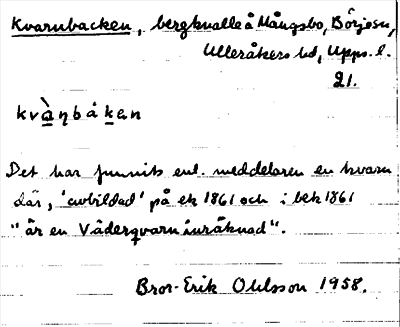 Kvarnbacken, bergknalle å Mångsbo, Börje sn,
Ulleråkers hd, Upps. l.
21.
kvà̱ŋbåk̲en
Det har funnits enl. meddelaren en kvarn
där, 'avbildad' på ek 1861 och i bek 1861
"är en Väderqvarn inräknad".
Bror-Erik Ohlsson 1958.